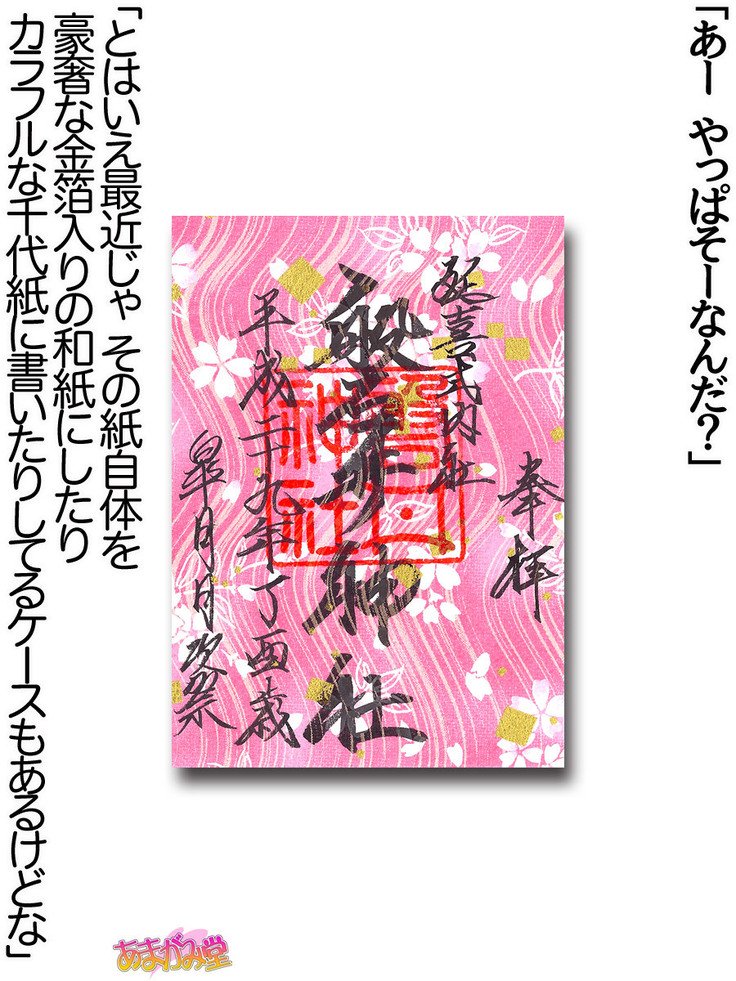 「あー やっぱそーなんだ？」
奉拝
延喜式内社
神社
平成二十九年丁酉歳
皐月月次祭
「とはいえ最近じゃ その紙自体を
豪奢な金箔入りの和紙にしたり
カラフルな千代紙に書いたりしてるケースもあるけどな」
あまがみ堂